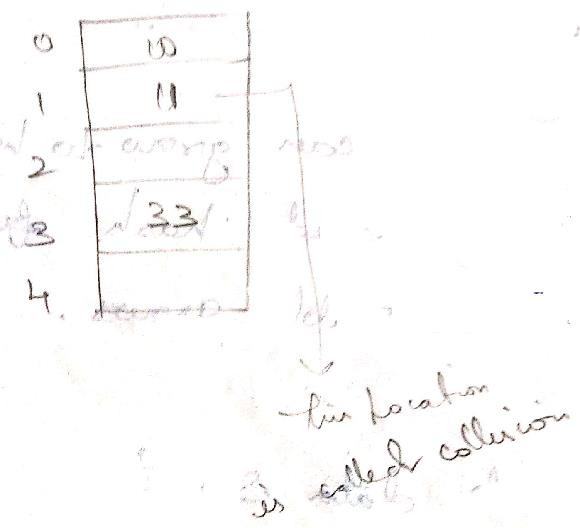 0 10
1 11
2
3 33
4
this Location
is called collision